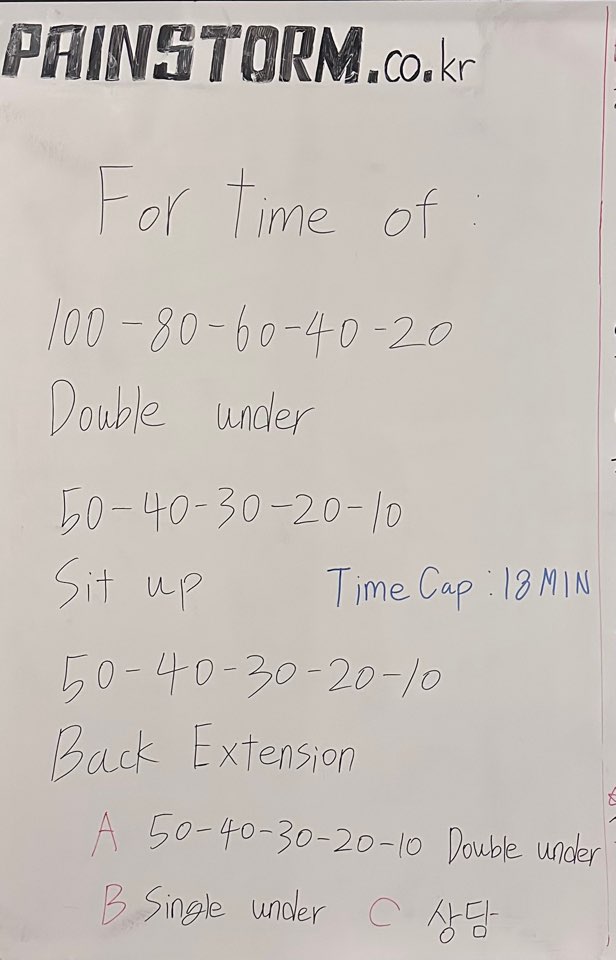 PAINSTORM.co.kr
For time of :
100-80-60-40-20
Double under
50-40-30-20-10
Sit up
Time Cap : 18 MIN
50-40-30-20-10
Back Extension
A 50-40-30-20-10 Double under
B Single under C 상담